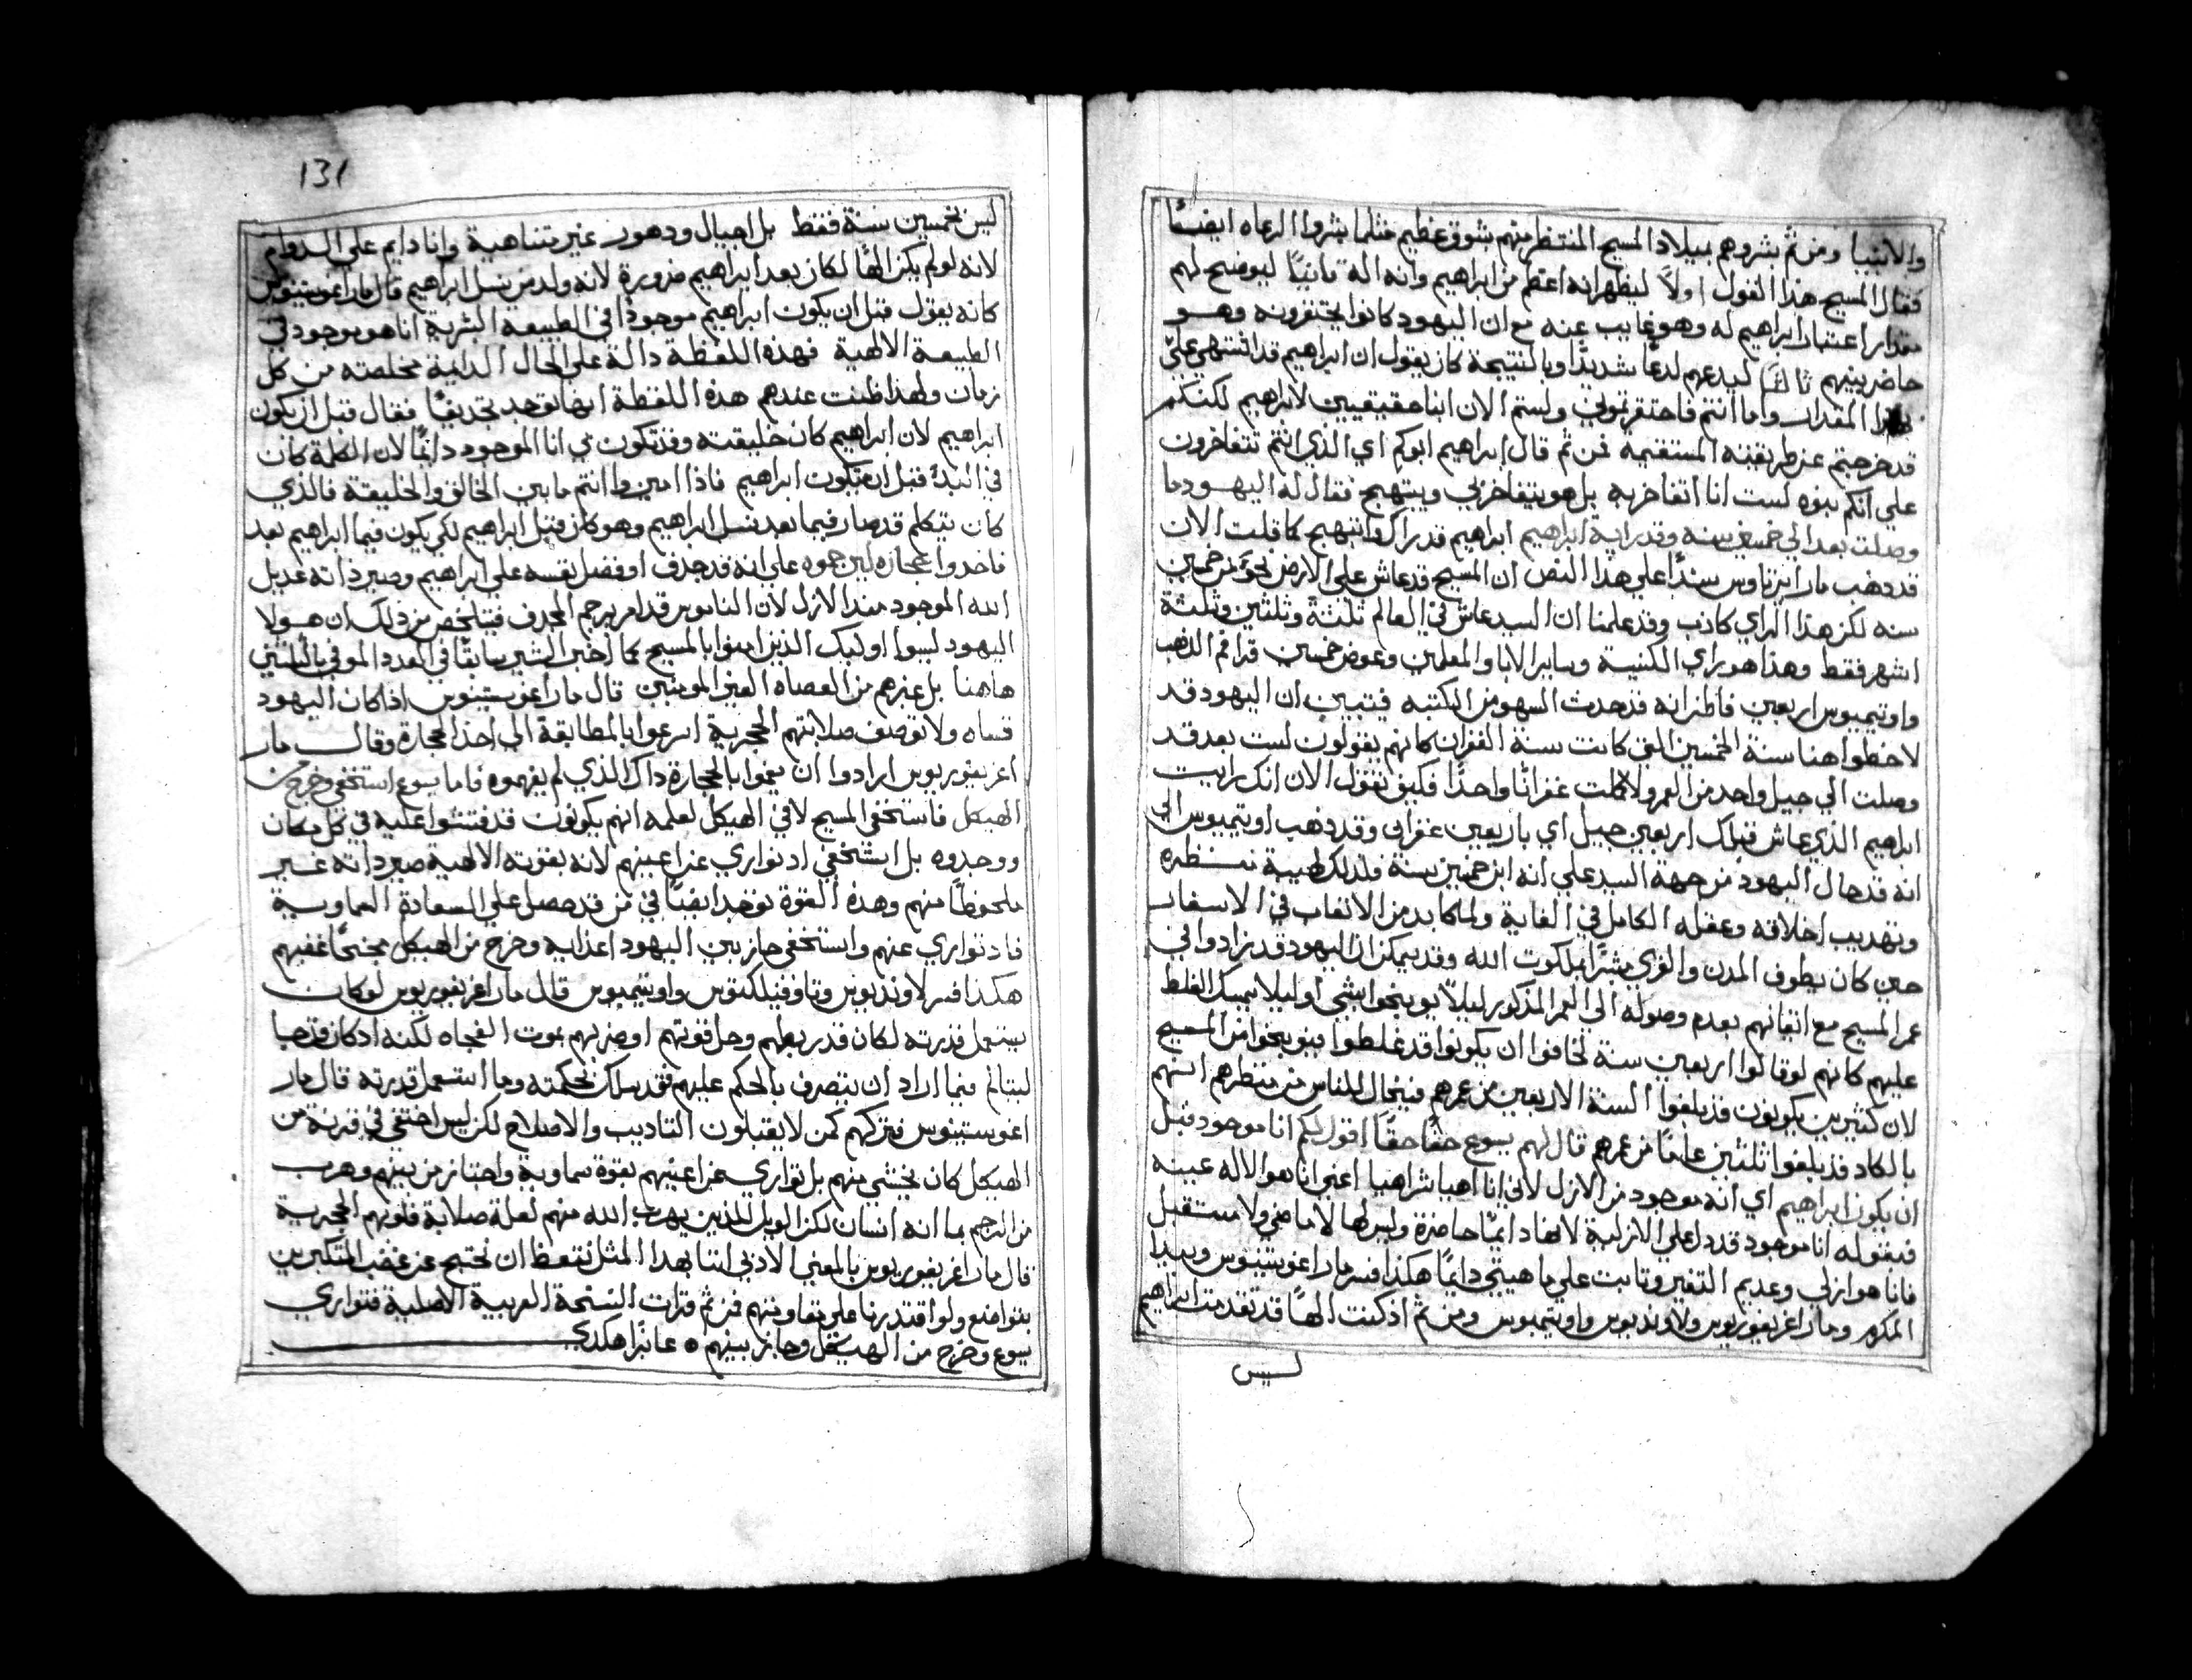 والانبيا ومن ثم بشروهم بميلاد المسيح المنتظر منهم بشوق عظيم مثلما بشروا الرعاه ايضًا
فقال المسيح هذا القول اولًا ليظهر انه اعظم من ابراهيم وانه اله ثانيًا ليوضح لهم
مقدار اعتبار ابراهيم له وهو غايب عنه مع ان اليهود كانوا يحتقرونه وهو
حاضر بينهم ثالثًا ليدعهم لدغًا شديدًا وبالنتيجة كان يقول ان ابراهيم قد اشتهى علي
هذا المقدار واما انتم فاحتقرتموني ولستم الان ابنا حقيقيين لابراهيم لكنكم
قد خرجتم عن طريقته المستقيمة فمن ثم قال ابراهيم ابوكم اي الذي انتم تتفاخرون
علي انكم بنوه لست انا اتفاخر به بل هو يتفاخر بي ويبتهج فقال له اليهود ما
وصلت بعد الى خمسين سنه وقد رايت ابراهيم ابراهيم قد راك وابتهج كما قلت الان
قد ذهب مار ايرناوس سندًا على هذا النص ان المسيح قد عاش على الارض نحو من خمسين
سنه لكن هذا الراي كاذب وقد علمنا ان السيد عاش في العالم ثلثة وثلثين وثلثة
اشهر فقط وهذا هو راي الكنيسة وساير الابا والمعلمين وعوض خمسين قرا فم الذهب
واوتيميوس اربعين فاظن انه قد حدث السهو من الكتبه فيتبين ان اليهود قد
لاحظوا هنا سنة الخمسين التي كانت سنة الغفران كانهم يقولون لست بعد قد
وصلت الي جيل واحد من العمر ولا كملت غفرانًا واحدًا فكيف تقول الان انك رايت
ابراهيم الذي عاش قبلك اربعين جيل اي باربعين غفران وقد ذهب اوتيميوس الي
انه قد خال اليهود من جهة السيد علي انه ابن خمسين سنة فلذلك لهيبة منظره
وتهديب اخلاقه وعقله الكامل في الغاية ولما كابد من الاتعاب في الاسفار
حين كان يطوف المدن والقري مبشرًا بملكوت الله وقد يمكن ان اليهود قد زادوا في
عمر المسيح مع ايقانهم بعدم وصوله الى العمر المذكور ليلا يوبخوا بشي او ليلا يمسك الغلط
عليهم كانهم لو قالوا اربعين سنة لخافوا ان يكونوا قد غلطوا فيوبخوا من المسيح
لان كثيرين يكونون قد بلغوا السنة الاربعين من عمرهم فيخال للناس من منظرهم انهم
بالكاد قد بلغوا ثلثين عامًا من عمرهم قال لهم يسوع حقًا حقًا اقول لكم انا موجود قبل
ان يكون ابراهيم اي انه موجود من الازل لاني انا اهيا شراهيا اعني انا هو الاله عينه
فبقوله انا موجود قد دل على الازلية لانها دايمًا حاضرة وليس لها لا ماضي ولا مستقبل
فانا هو ازلي وعديم التغير وثابت علي ماهيتي دايمًا هكذا فسر مار اغوستينوس وبيدا
المكرم ومار اغريغوريوس ولاونديوس واوتيميوس ومن ثم اذ كنت الهًا قد تقدمت ابراهيم
ليس
131
ليس بخمسين سنة فقط بل اجيال ودهور غير متناهية وانا دايم علي الدوام
لانه لو لم يكن الهًا لكان بعد ابراهيم ضرورة لانه ولد من نسل ابراهيم قال مار اغوستينوس
كانه يقول قبل ان يكون ابراهيم موجودًا في الطبيعة البشرية انا هو موجود في
الطبيعة الالهية فهذه اللفظة دالة على الحال الدايمة مخلصته من كل
زمان ولهذا ظنت عندهم هذه اللفظة انها توجد تجديفًا فقال قبل ان يكون
ابراهيم لان ابراهيم كان خليقته وقد تكون بي انا الموجود دايمًا لان الكلمة كان
في البدء قبل ان يكون ابراهيم فاذا امين وانتم ما بين الخالق والخليقة فالذي
كان يتكلم قد صار فيما بعد نسل ابراهيم وهو كان قبل ابراهيم لكي يكون فيما ابراهيم بعد
فاخدوا حجاره ليرجموه علي انه قد جدف او فضل نفسه علي ابراهيم وصير ذاته عديل
الله الموجود منذ الازل لان الناموس قد امر برجم المجدف فيتلخص من ذلك ان هولا
اليهود ليسوا اوليك الذين امنوا بالمسيح كما اخبر البشير سابقًا في العدد الموفي بالثلثين
هاهنا بل غيرهم من العصاه الغير المومنين قال مار اغوستينوس اذا كان اليهود
قساه ولا توصف صلابتهم الحجرية اسرعوا بالمطابقة الى اخذ الحجارة وقال مار
اغريغوريوس ارادوا ان يغموا بالحجارة داك الذي لم يفهموه فاما يسوع استخفي وخرج من
الهيكل فاستخفي المسيح لا في الهيكل لعلمه انهم يكونون قد فتشوا عليه في كل مكان
ووجدوه بل استخفي اد تواري عن اعينهم لانه بقوته الالهية صير داته غير
ملحوظًا منهم وهذه القوة توجد ايضًا في من قد حصل علي السعادة السماوية
فاد تواري عنهم واستخفي جاز بين اليهود اعدايه وخرج من الهيكل مجنبًا غضبهم
هكذا فسر لاونديوس وتاوفيلكتوس واوتيميوس قال مار اغريغوريوس لو كان
يستعمل قدرته لكان قد ربطهم وحل قوتهم او ضربهم بموت الفجاه لكنه اد كان قد جا
ليتالم فما اراد ان يتصرف بالحكم عليهم فقد سلك بحكمته وما استعمل قدرته قال مار
اغوستينوس فتركهم كمن لا يقبلون التاديب والاصلاح لكن ليس اختفي في قرنة من
الهيكل كان يخشي منهم بل تواري عن اعينهم بقوة سماوية واجتاز من بينهم وهرب
من الرجم بما انه انسان لكن الويل للذين يهرب الله منهم لعلة صلابة قلوبهم الحجرية
قال مار اغريغوريوس بالمعني الادبي اننا بهذا المثل نتعظ ان نحتيج عن غضب المتكبرين
بتواضع ولو اقتدرنا على مقاومتهم فمن ثم قرات النسخة العربية الاصلية فتواري
يسوع وخرج من الهيكل وجاز بينهم ٥ عابرًا هكدي